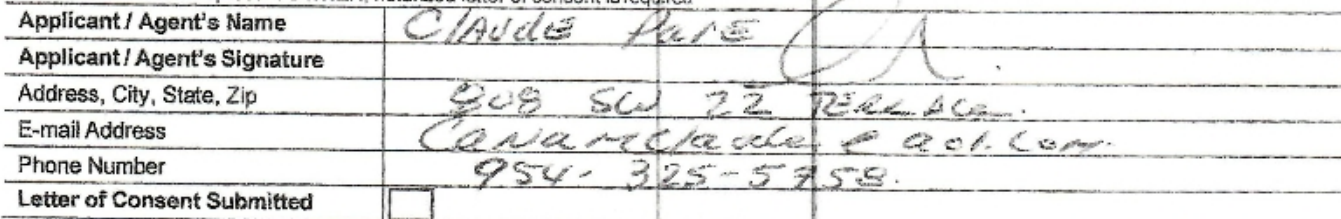 letter of consent is required
Applicant / Agent's Name Claude Pare
Applicant / Agent's Signature
Address, City, State, Zip 808 SW 22 Terrace.
E-mail Address Canamclaude@aol.com.
Phone Number 954-325-5758.
Letter of Consent Submitted